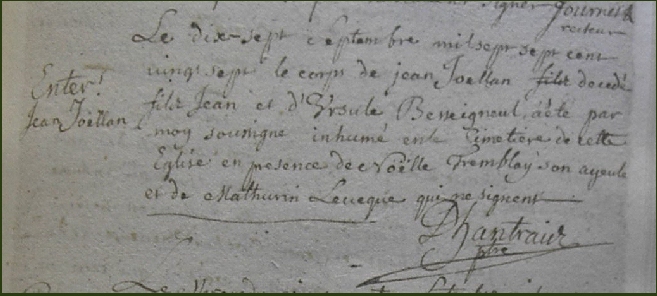 signer Journel
recteur
Enter!
Jean Joëllan
Le dix-sept septembre mil sept sept cent
vingt sept le corps de jean Joëllan fils decedé
fils Jean et d'Ursule Berreigneul, a été par
moy sousigné inhumé en le Cimetière de cette
Eglise en presence de Noëlle Tremblay son ayeule
et de Mathurin Leveque qui ne signent
ptre